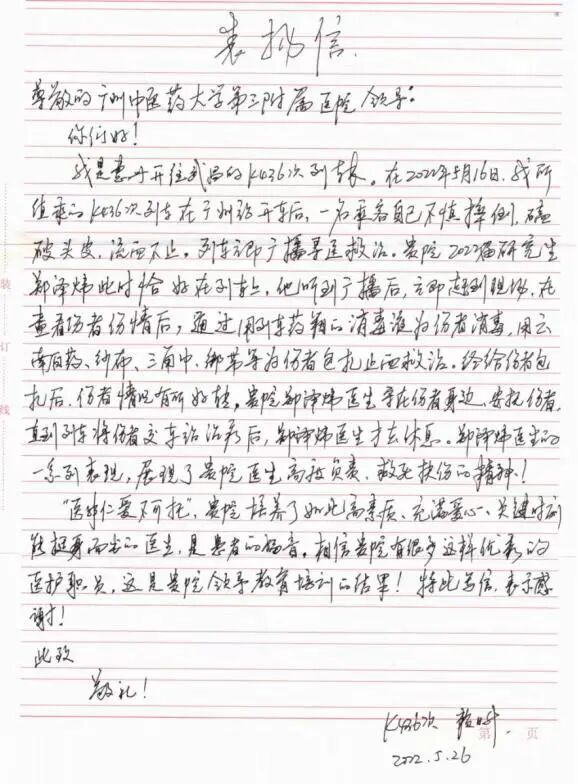 表扬信
尊敬的广州中医药大学第三附属医院领导：
你们好！
我是惠州开往武昌的K436次列车长。在2022年5月16日，我所
值乘的K436次列车在广州站开车后，一名乘客自己不慎摔倒，磕
破头皮，流血不止。列车立即广播寻医救治。贵院2022届研究生
郑泽炜此时恰好在列车上，他听到广播后，立即赶到现场，在
查看伤者伤情后，通过用列车药箱的消毒液为伤者消毒，用云
南白药、纱布、三角巾、绑带等为伤者包扎止血救治。经给伤者包
扎后，伤者情况有所好转。贵院郑泽炜医生守在伤者身边、安抚伤者，
直到列车将伤者交车站治疗后，郑泽炜医生才去休息。郑泽炜医生的
一系列表现，展现了贵院医生高度负责、救死扶伤的精神！
“医者仁爱不可托”，贵院培养了如此高素质、充满爱心、关键时刻
能挺身而出的医生，是患者的福音。相信贵院有很多这样优秀的
医护职员，这是贵院领导教育培训的结果！特此写信，表示感
谢！
此致
敬礼！
K436次
2022.5.26
装
订
线
第 页